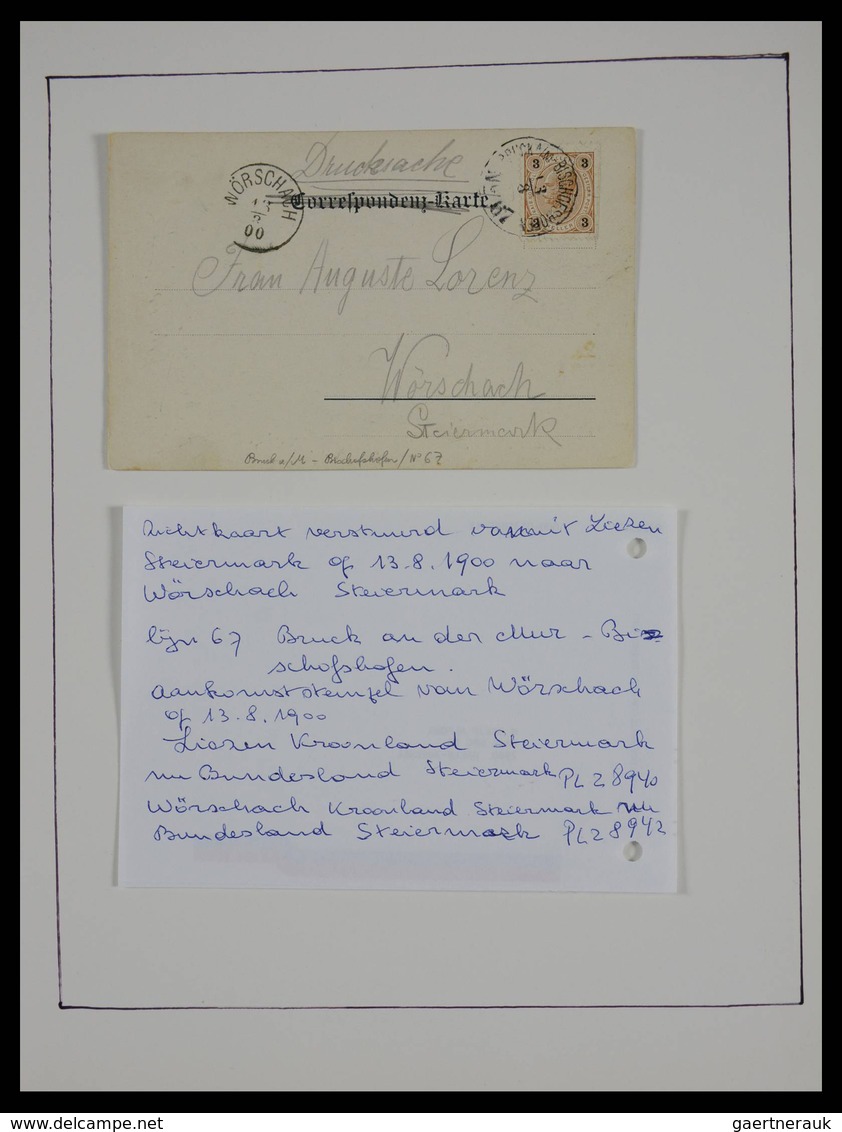 Drucksache
Correspondenz-Karte
WÖRSCHACH
13
8
00
BRUCK A/M-BISCHOFSHOFEN
13
8
67
3 3
3 3
Frau Auguste Lorenz
Wörschach
Steiermark
Bruck a/M - Bischofshofen / No 67
Zichtkaart verstuurd vanuit Liezen
Steiermark op 13.8.1900 naar
Wörschach Steiermark
lijn 67 Bruck an der Mur - Bi
schofshofen.
Aankomststempel van Wörschach
op 13.8.1900
Liezen Kroonland Steiermark
nu Bundesland Steiermark PLZ 8940
Wörschach Kroonland Steiermark nu
Bundesland Steiermark PLZ 8942
delcampe.net
gaertnerauk